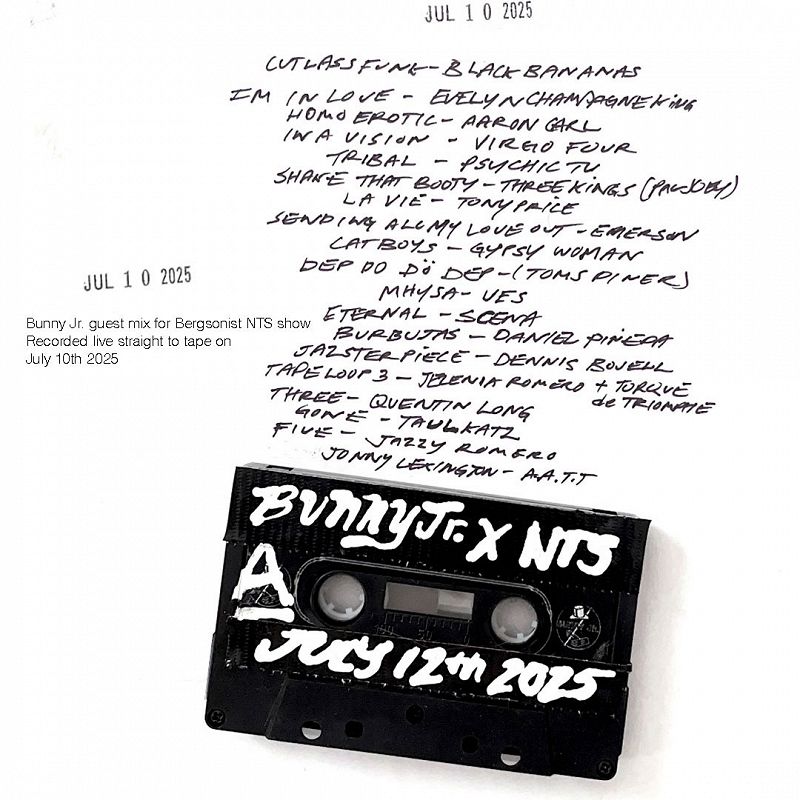 JUL 10 2025
CUTLASS FUNK - BLACK BANANAS
IM IN LOVE - EVELYN CHAMPAGNE KING
HOMOEROTIC - AARON CARL
IN A VISION - VIRGO FOUR
TRIBAL - PSYCHIC TV
SHAKE THAT BOOTY - THREE KINGS (PAL JOEY)
LA VIE - TONY PRICE
SENDING ALL MY LOVE OUT - EMERSON
CATBOYS - GYPSY WOMAN
DEP DO DÖ DEP - (TOMS DINER)
MHYSA - VES
ETERNAL - SCENA
BURBUJAS - DANIEL PIÑEDA
JAZSTERPIECE - DENNIS BOVELL
TAPE LOOP 3 - JELENIA ROMERO + TORQUE
de TRIOMPHE
THREE - QUENTIN LONG
GONE - TAUL KATZ
FIVE - JAZZY ROMERO
JONNY LEXINGTON - A.A.T.T
JUL 10 2025
Bunny Jr. guest mix for Bergsonist NTS show
Recorded live straight to tape on
July 10th 2025
BUNNY Jr. X NTS
A
JULY 12th 2025